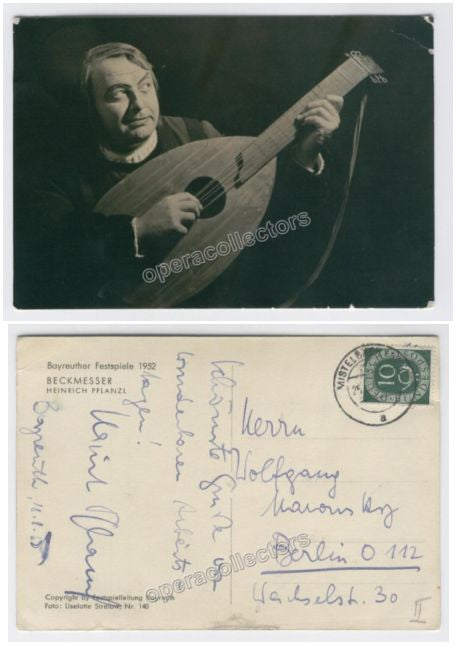 operacollectors
Bayreuther Festspiele 1952
BECKMESSER
HEINRICH PFLANZL
Schönste Grüße von
wunderbaren Arbeits
tagen!
Heinrich Pflanzl
Bayreuth,
Copyright by Festspielleitung Bayreuth
Foto: Liselotte Strelow, Nr. 140
MISTELB
a
DEUTSCHE BUNDESPOST
10
Herrn
Wolfgang
Berlin O 112
30
II
operacollectors